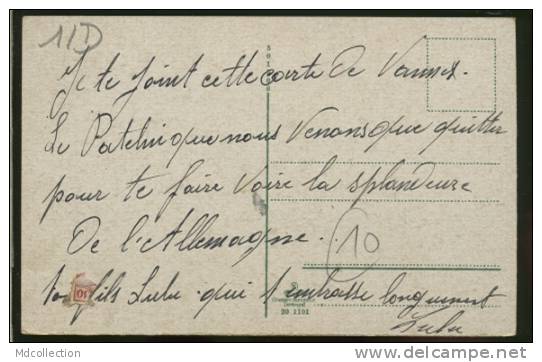 11D
Je te joint cette carte de Vannes.
Le Patelin que nous Venons que quitter
pour te faire Voire la splendeure
De l'Allemagne.
10
ton fils Lulu qui t'embrasse longuement
Lulu
20 1101
MDcollection
www.delcampe.net